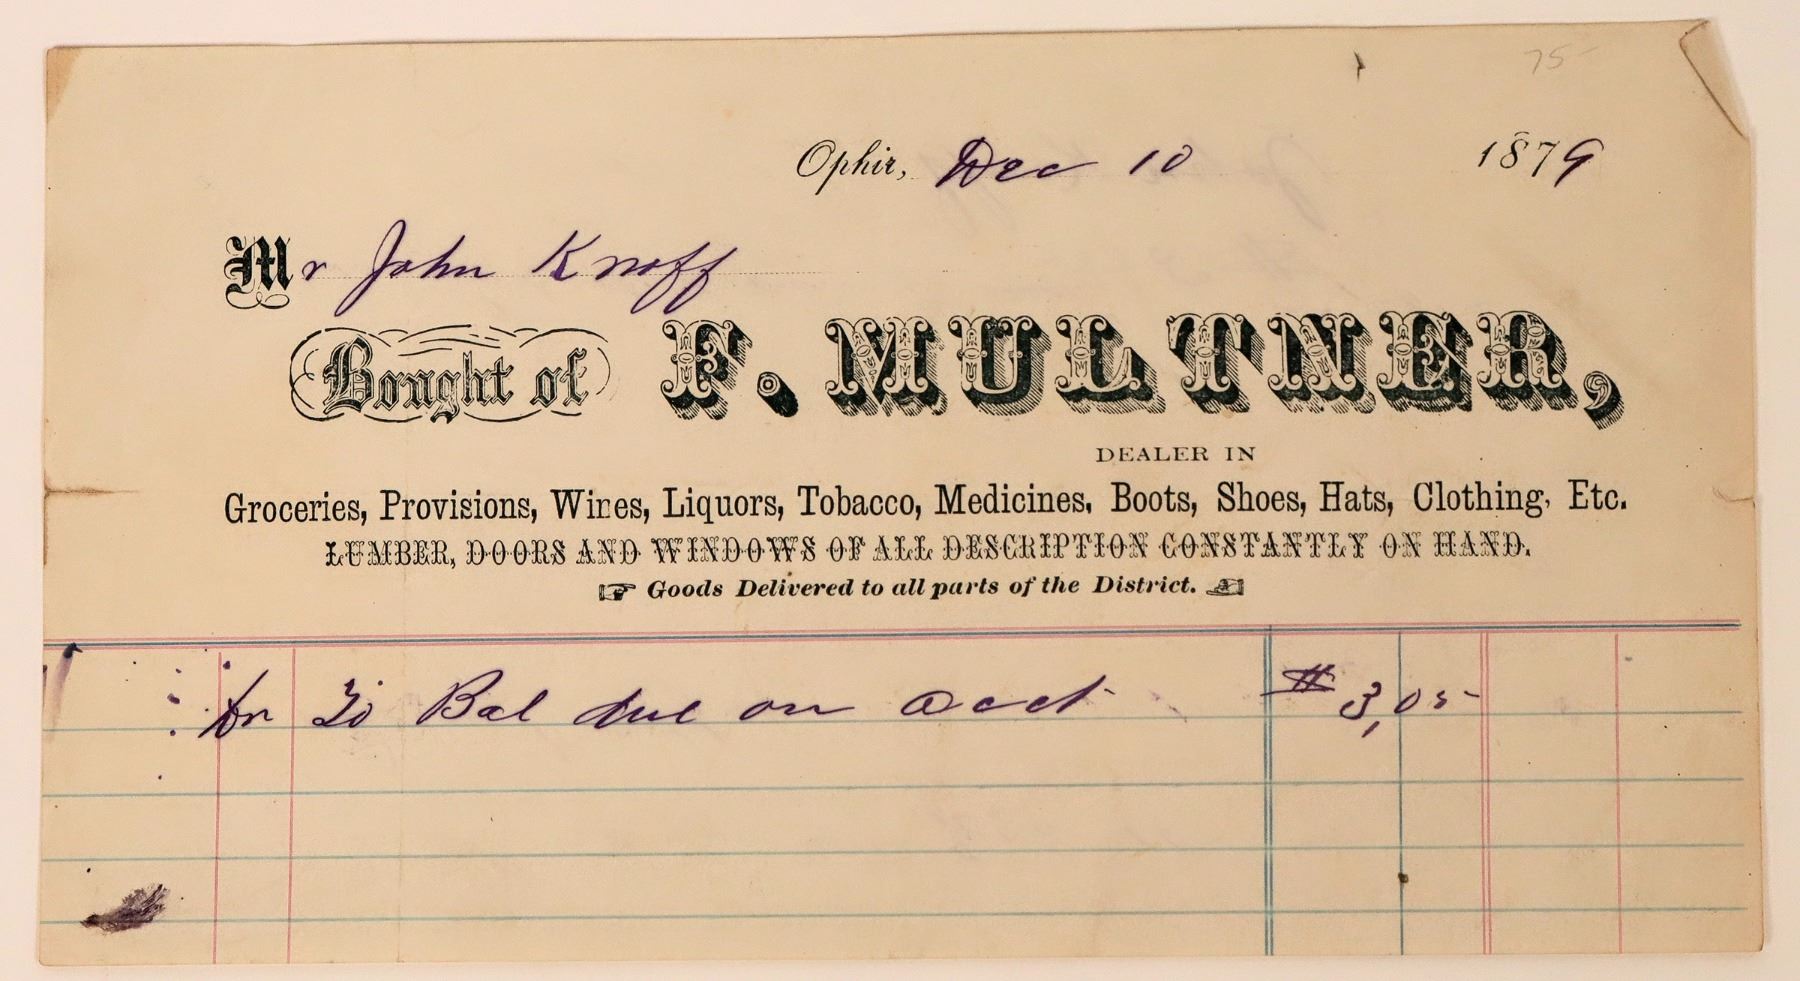 75-
Ophir, Dec 10 1879
Mr John Knoff
Bought of F. MULTNER,
DEALER IN
Groceries, Provisions, Wines, Liquors, Tobacco, Medicines, Boots, Shoes, Hats, Clothing, Etc.
LUMBER, DOORS AND WINDOWS OF ALL DESCRIPTION CONSTANTLY ON HAND.
☞ Goods Delivered to all parts of the District. ☜
To Bal due on acct # 3,05-